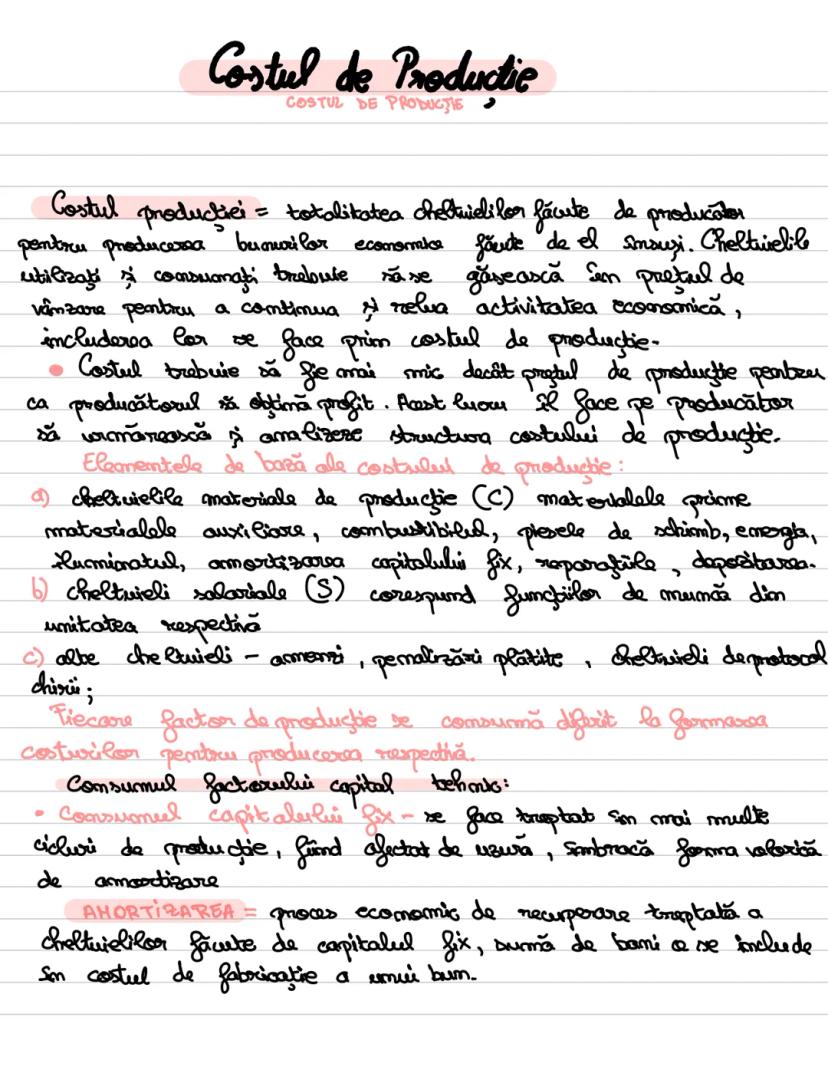 Costul de Producție
COSTUL DE PRODUCȚIE
Costul producției = totalitatea cheltuielilor făcute de producător
pentru producerea bunurilor economice făcute de el însuși. Cheltuielile
utilizați și consumați trebuie să se găsească în prețul de
vânzare pentru a continua și relua activitatea economică,
includerea lor se face prin costul de producție.
• Costul trebuie să fie mai mic decât prețul de producție pentru
ca producătorul să obțină profit. Acest lucru îl face pe producător
să urmărească și analizeze structura costului de producție.
Elementele de bază ale costului de producție:
a) cheltuielile materiale de producție (C) materialele prime
materialele auxiliare, combustibilul, piesele de schimb, energia,
iluminatul, amortizarea capitalului fix, reparațiile, depozitarea.
b) cheltuieli salariale (S) corespund funcțiilor de muncă din
unitatea respectivă
c) alte cheltuieli - amenzi, penalizări plătite, cheltuieli de protocol
chirii;
Fiecare factor de producție se consumă diferit la formarea
costurilor pentru producerea respectivă.
Consumul factorului capital tehnic:
• Consumul capitalului fix - se face treptat în mai multe
cicluri de producție, fiind afectat de uzură, îmbracă forma valorică
de amortizare
AMORTIZAREA = proces economic de recuperare treptată a
cheltuielilor făcute de capitalul fix, sumă de bani ce se include
în costul de fabricație a unui bun.